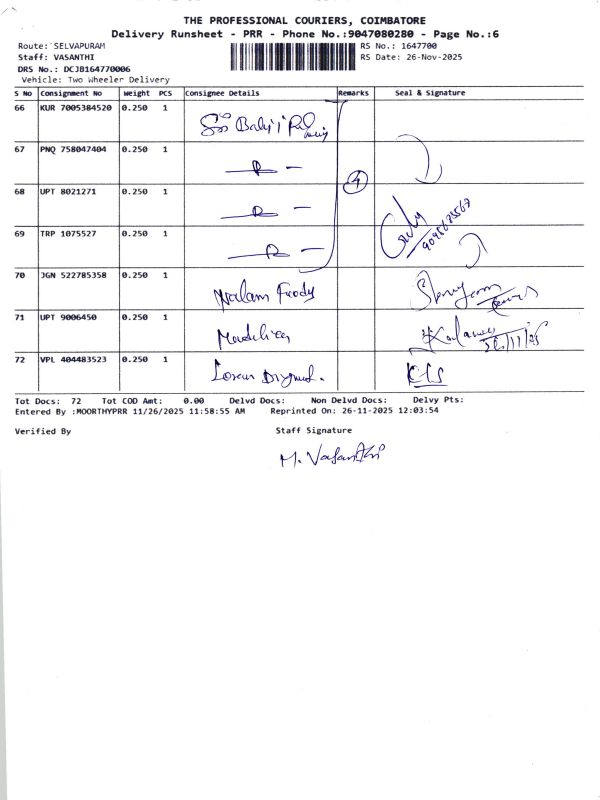 THE PROFESSIONAL COURIERS, COIMBATORE
Delivery Runsheet - PRR - Phone No.:9047080280 - Page No.:6
Route: SELVAPURAM RS No.: 1647700
Staff: VASANTHI RS Date: 26-Nov-2025
DRS No.: DCJ8164770006
Vehicle: Two Wheeler Delivery
S No Consignment No Weight PCS Consignee Details Remarks Seal & Signature
66 KUR 7005384520 0.250 1 Sri Balaji
67 PNQ 758047404 0.250 1
4
68 UPT 8021271 0.250 1
69 TRP 1075527 0.250 1
70 JGN 522785358 0.250 1 Nalam
71 UPT 9006450 0.250 1 26/11/25
72 VPL 404483523 0.250 1
Tot Docs: 72 Tot COD Amt: 0.00 Delvd Docs: Non Delvd Docs: Delvy Pts:
Entered By :MOORTHYPRR 11/26/2025 11:58:55 AM Reprinted On: 26-11-2025 12:03:54
Verified By Staff Signature
M. Vasanthi